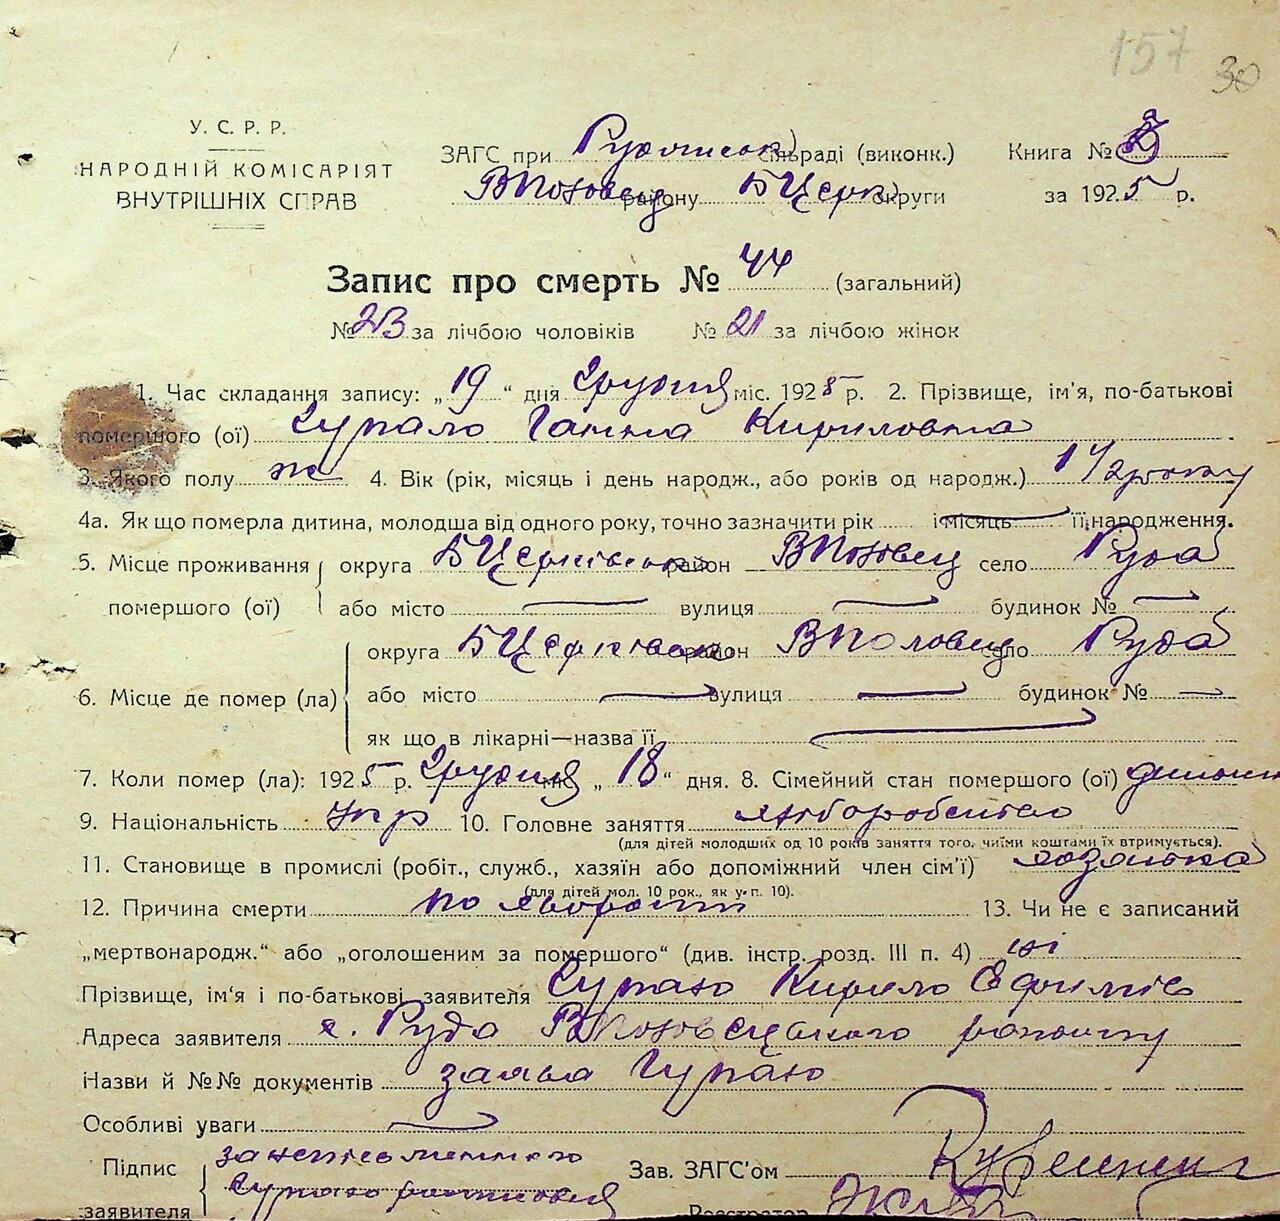 157 30
У. С. Р. Р.
НАРОДНІЙ КОМІСАРІЯТ
ВНУТРІШНІХ СПРАВ
ЗАГС при сільраді (виконк.) Книга №
району Б Церк округи за 1925 р.
Запис про смерть № 44 (загальний)
№ 23 за лічбою чоловіків № 21 за лічбою жінок
1. Час складання запису: „19“ дня Грудня міс. 1925 р. 2. Прізвище, ім'я, по-батькові
помершого (ої) Ганна Кириловна
3. Якого полу ж 4. Вік (рік, місяць і день народж., або років од народж.) 1 1/2 року
4а. Як що померла дитина, молодша від одного року, точно зазначити рік і місяць її народження.
5. Місце проживання помершого (ої) округа Б Церківська район село Руда
або місто вулиця будинок №
6. Місце де помер (ла) округа Б Церківська район ВПоловец село Руда
або місто вулиця будинок №
як що в лікарні—назва її
7. Коли помер (ла): 1925 р. Грудня міс. „18“ дня. 8. Сімейний стан помершого (ої)
9. Національність Укр 10. Головне заняття хліборобство
(для дітей молодших од 10 років заняття того, чиїми коштами їх втримується).
11. Становище в промислі (робіт., служб., хазяїн або допоміжний член сім'ї)
(для дітей мол. 10 рок., як у п. 10).
12. Причина смерти по хворости 13. Чи не є записаний
„мертвонародж.“ або „оголошеним за помершого“ (див. інстр. розд. III п. 4) ні
Прізвище, ім'я і по-батькові заявителя Кирило
Адреса заявителя с. Руда району
Назви й №№ документів заява
Особливі уваги
Підпис Зав. ЗАГС'ом
заявителя Реєстратор